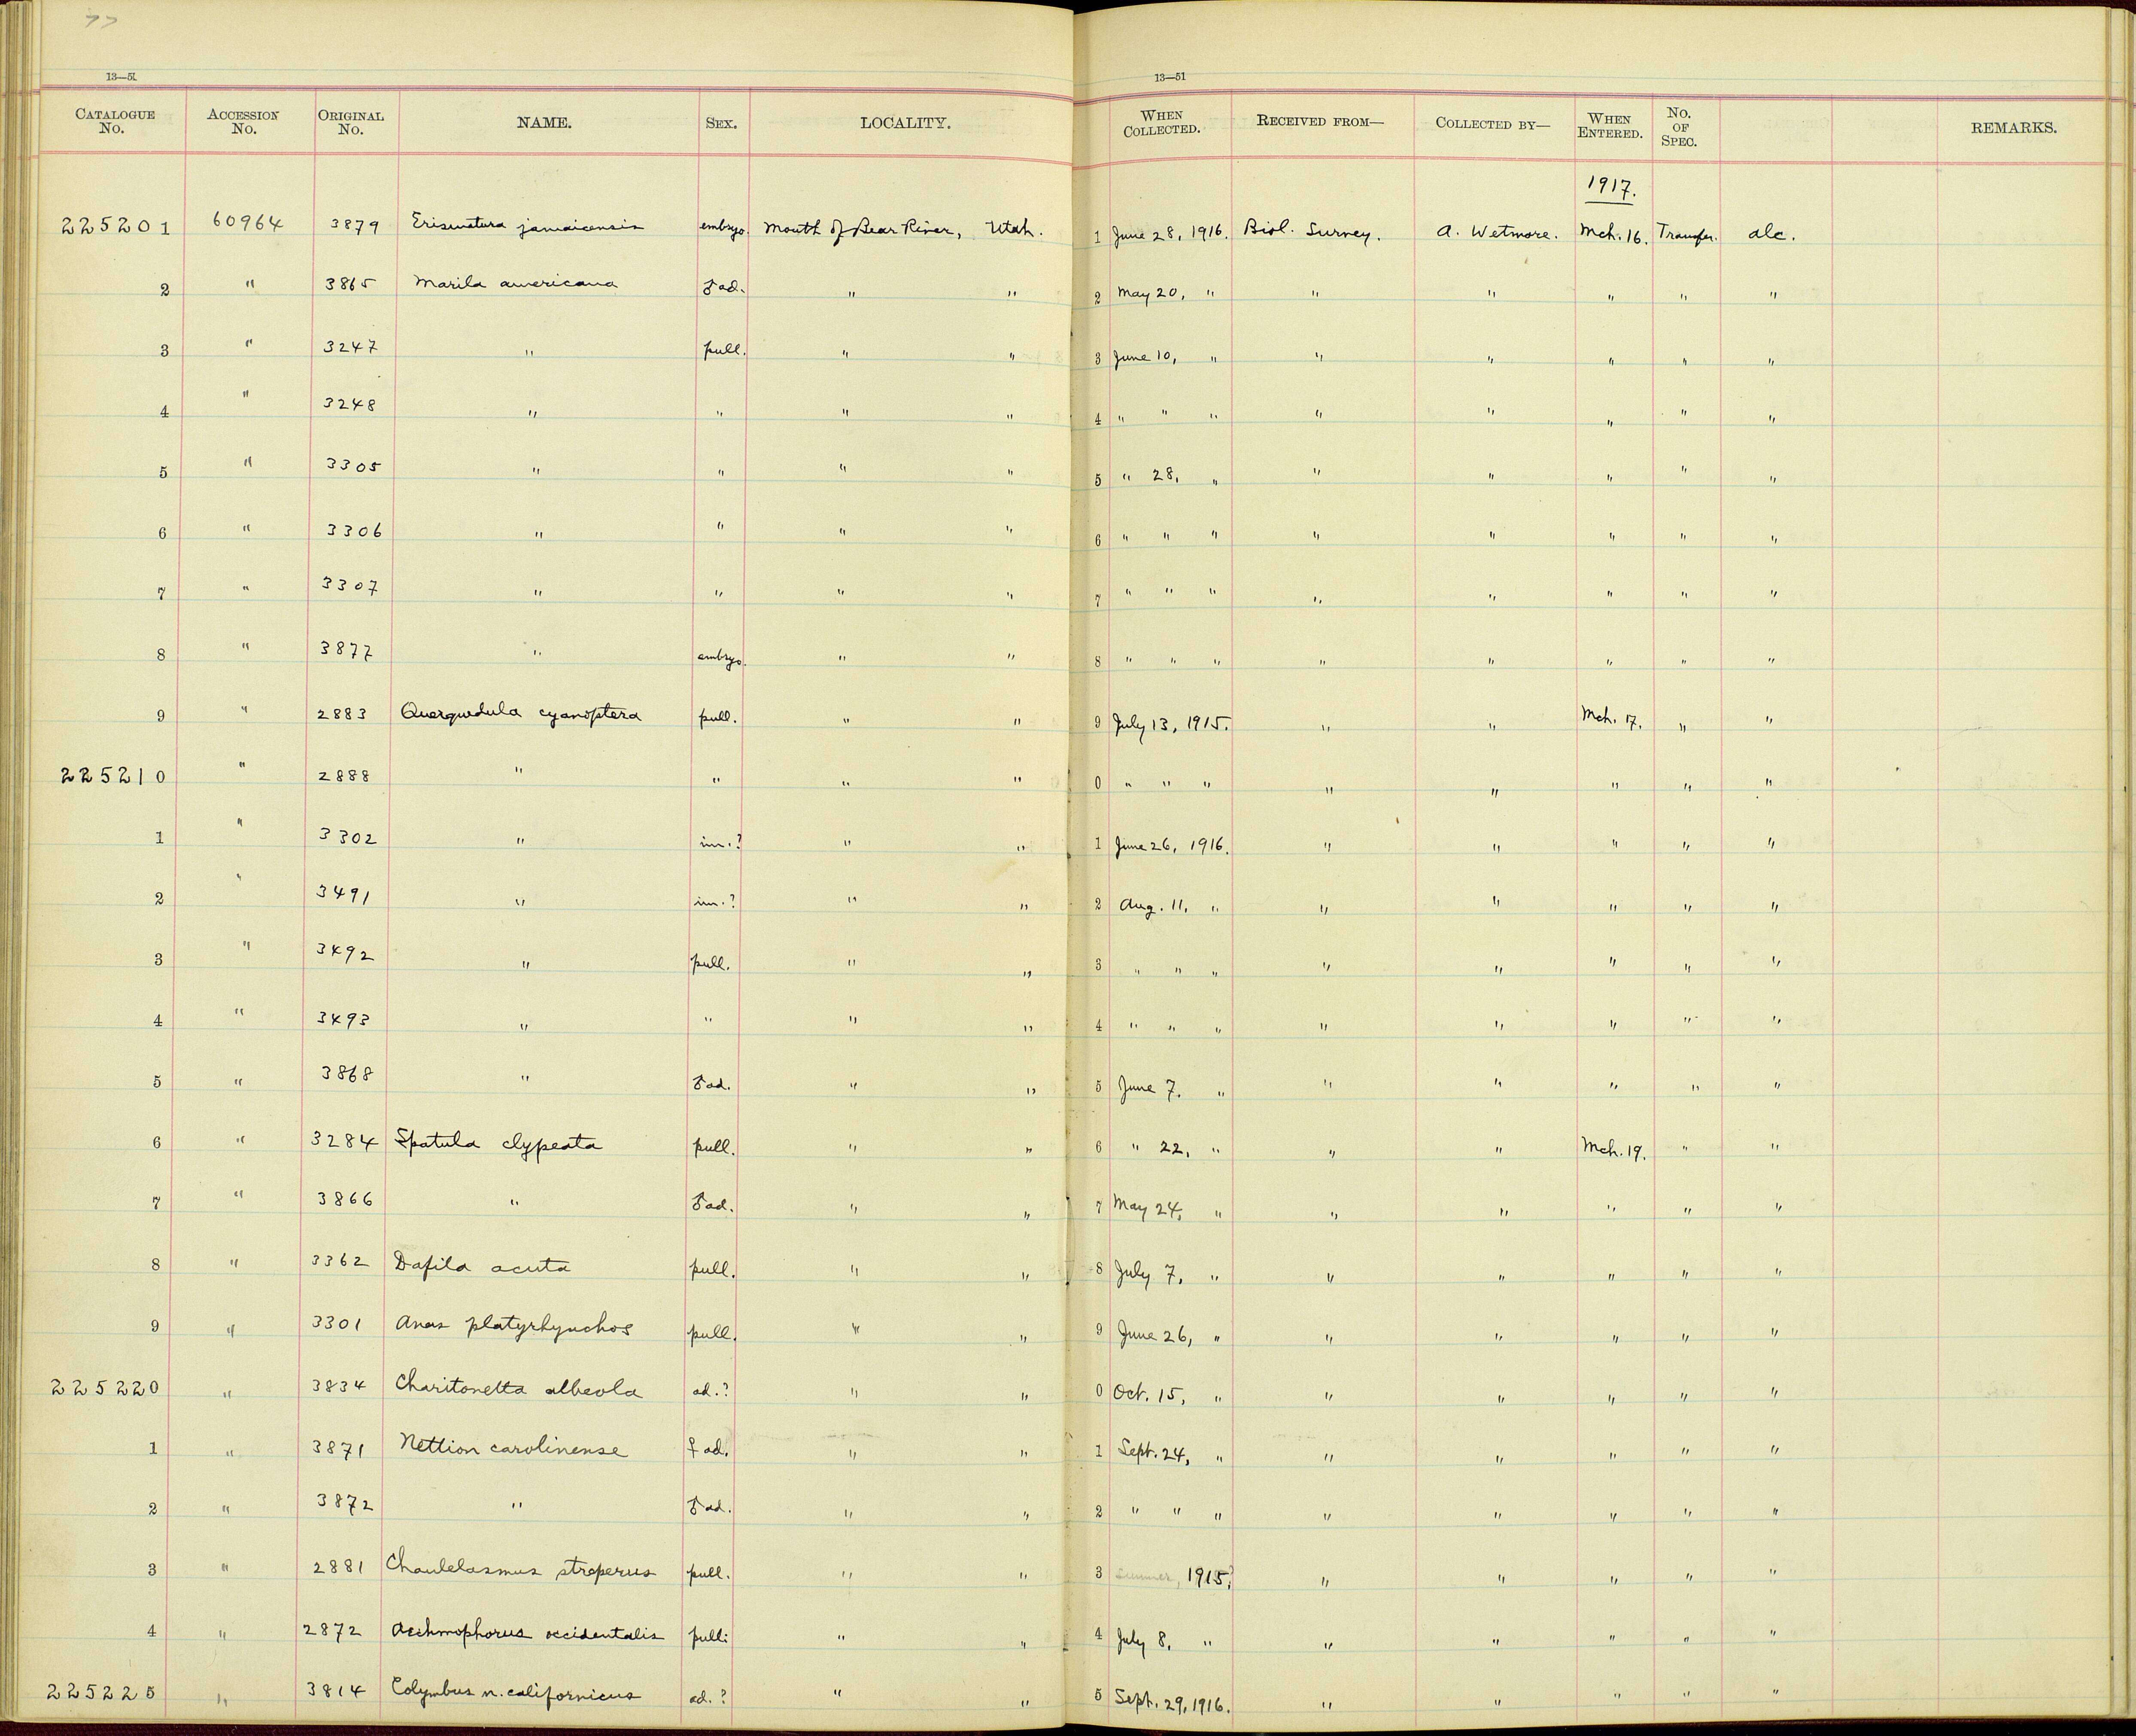 77
13—51 13—51
CATALOGUE No. ACCESSION No. ORIGINAL No. NAME. SEX. LOCALITY. WHEN COLLECTED. RECEIVED FROM— COLLECTED BY— WHEN ENTERED. No. OF SPEC. REMARKS.
1917.
225201 60964 3879 Erismatura jamaicensis embryo. Mouth of Bear River, Utah. 1 June 28, 1916. Biol. Survey. A. Wetmore. Mch. 16. Transfer. alc.
2 " 3865 Marila americana ♂ ad. " " 2 May 20, " " " " " "
3 " 3247 " pull. " " 3 June 10, " " " " " "
4 " 3248 " " " " 4 " " " " " " " "
5 " 3305 " " " " 5 " 28, " " " " " "
6 " 3306 " " " " 6 " " " " " " " "
7 " 3307 " " " " 7 " " " " " " " "
8 " 3877 " embryo. " " 8 " " " " " " " "
9 " 2883 Querquedula cyanoptera pull. " " 9 July 13, 1915. " " Mch. 17. " "
225210 " 2888 " " " " 0 " " " " " " " "
1 " 3302 " im.? " " 1 June 26, 1916. " " " " "
2 " 3491 " im.? " " 2 Aug. 11, " " " " " "
3 " 3492 " pull. " " 3 " " " " " " " "
4 " 3493 " " " " 4 " " " " " " " "
5 " 3868 " ♂ ad. " " 5 June 7. " " " " " "
6 " 3284 Spatula clypeata pull. " " 6 " 22, " " " Mch. 19. " "
7 " 3866 " ♂ ad. " " 7 May 24, " " " " " "
8 " 3362 Dafila acuta pull. " " 8 July 7, " " " " " "
9 " 3301 Anas platyrhynchos pull. " " 9 June 26, " " " " " "
225220 " 3834 Charitonetta albeola ad.? " " 0 Oct. 15, " " " " " "
1 " 3871 Nettion carolinense ♀ ad. " " 1 Sept. 24, " " " " " "
2 " 3872 " ♂ ad. " " 2 " " " " " " " "
3 " 2881 Chaulelasmus streperus pull. " " 3 Summer, 1915? " " " " "
4 " 2872 Aechmophorus occidentalis pull. " " 4 July 8, " " " " " "
225225 " 3814 Colymbus n. californicus ad.? " " 5 Sept. 29, 1916. " " " " "